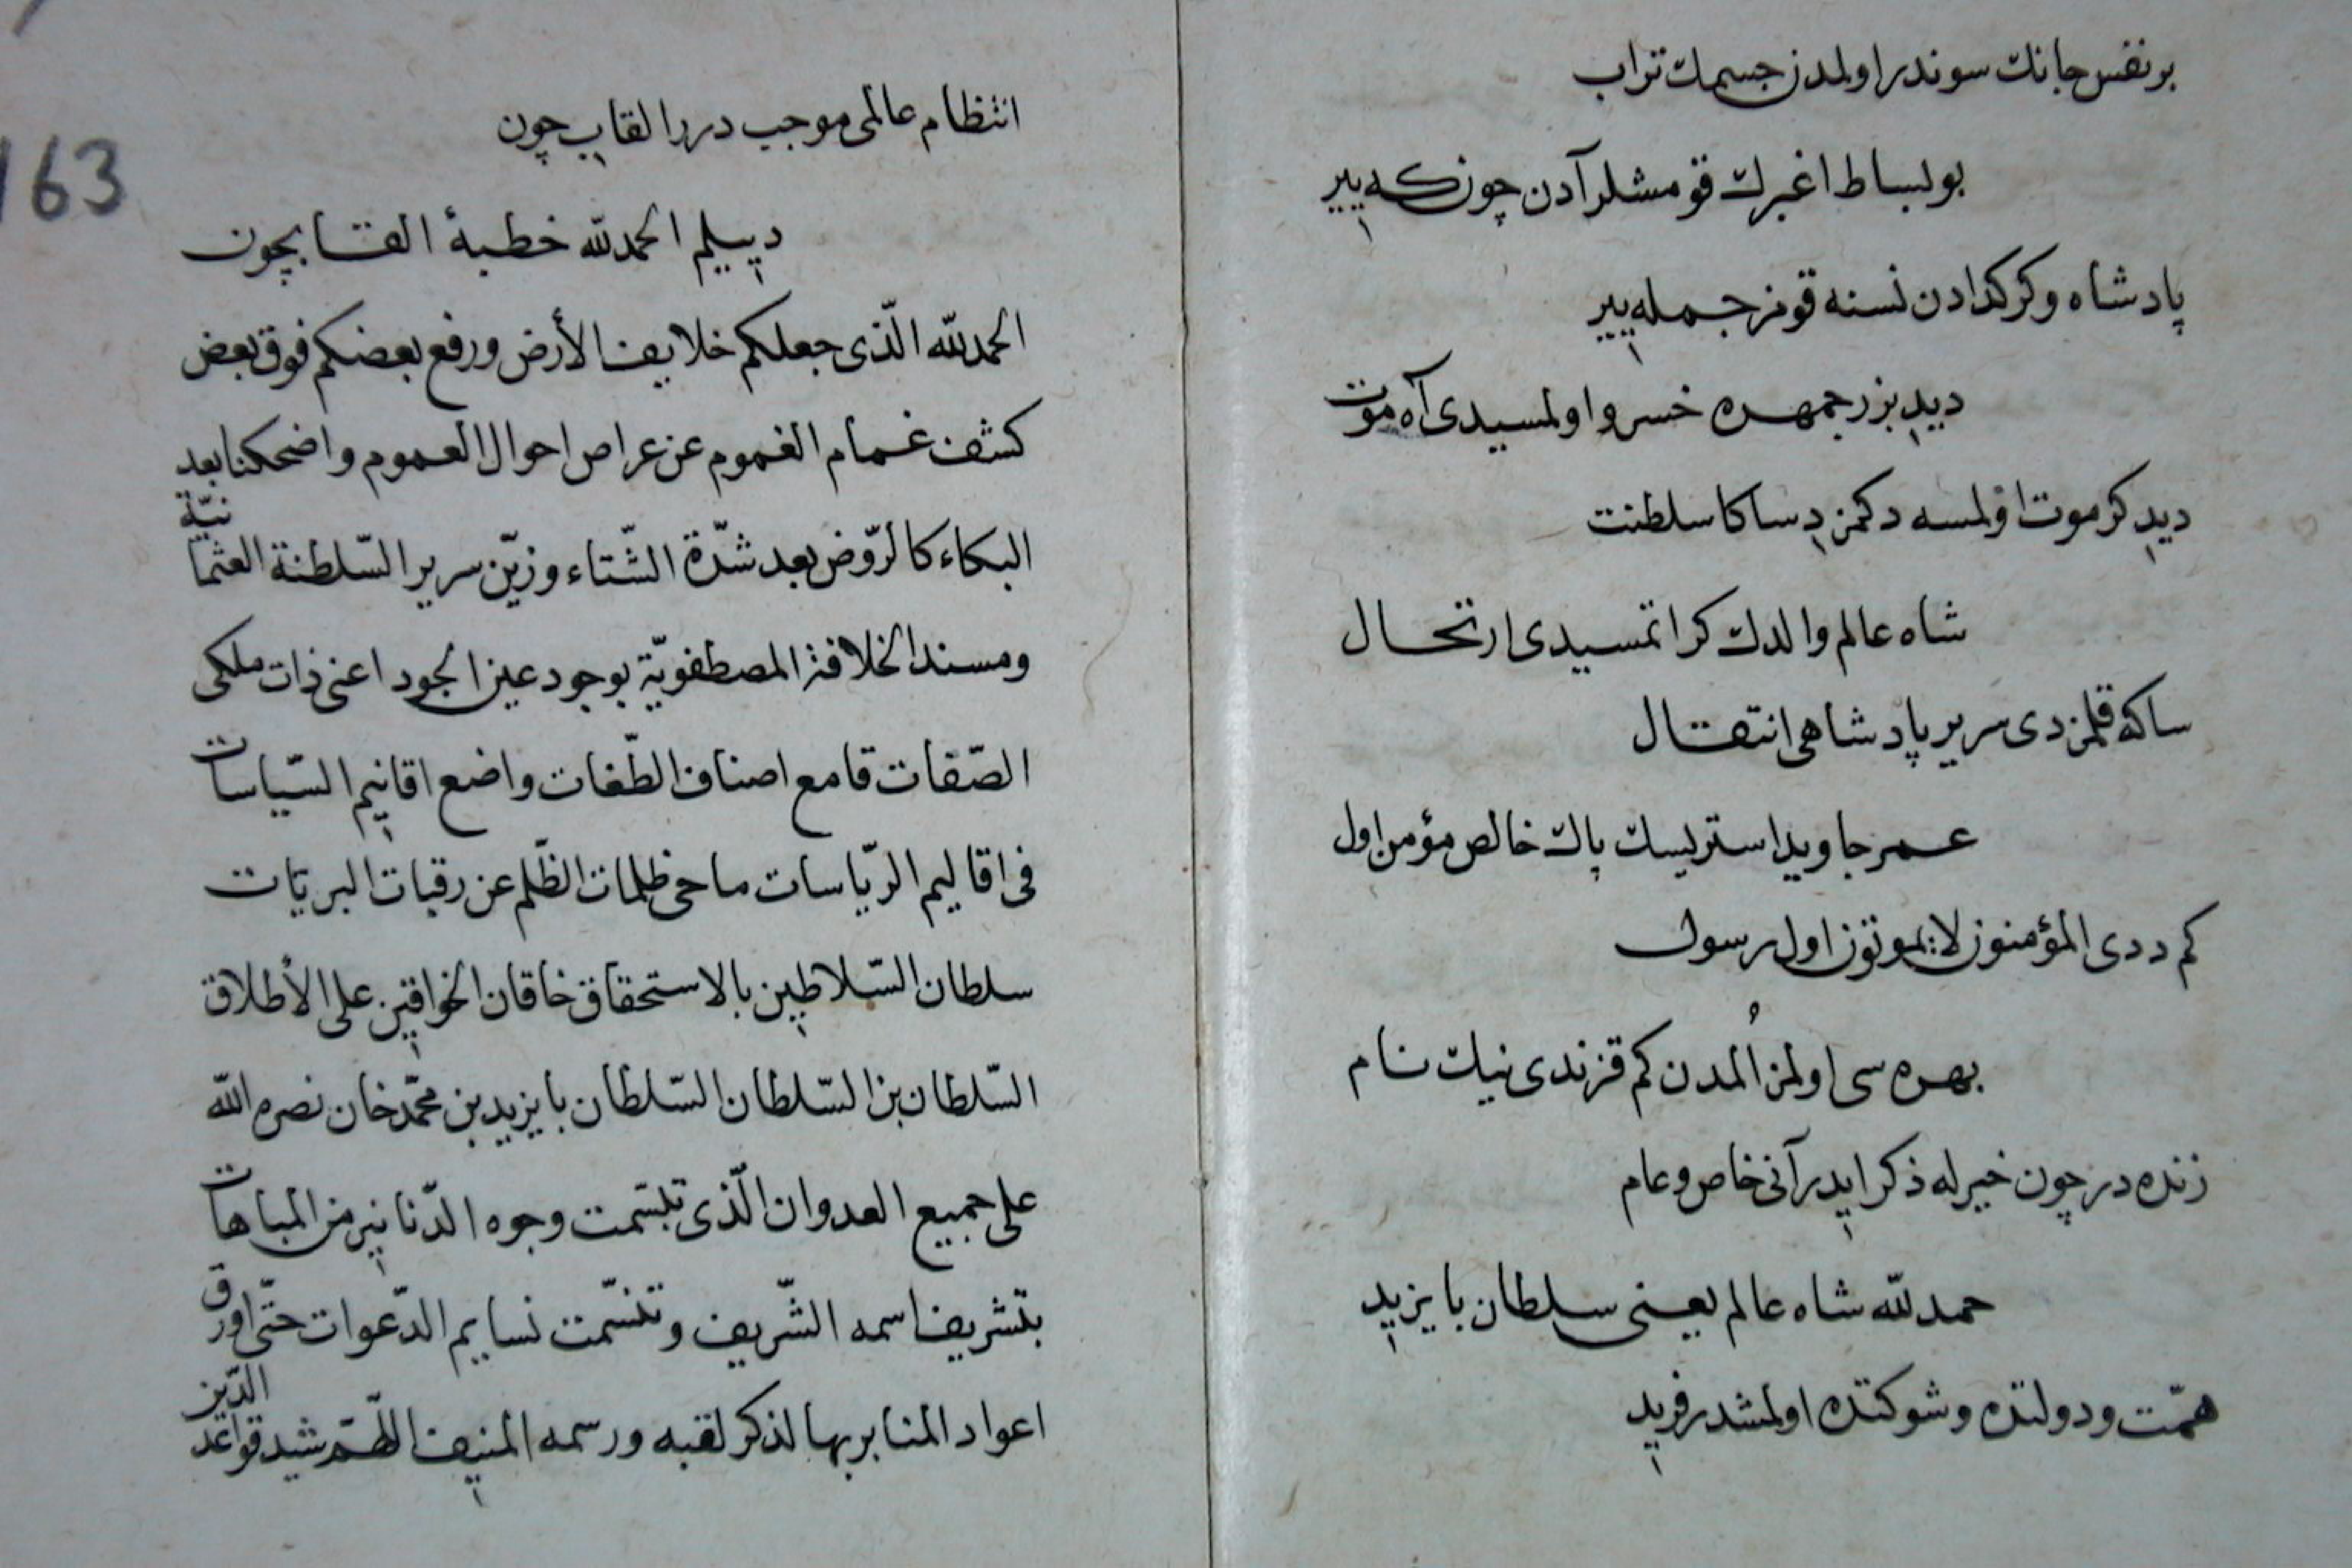 بر نفس جانك سوندر اولمدن جسمك تراب
بو بساط اغبرك قومشلر آدن چونكه يير
پادشاه و كر كدادن نسنه قومز جمله يير
ديد بزرجمهره خسرو اولمسيدى آه موت
ديد كر موت اولمسه دكمزدى ساكا سلطنت
شاه عالم والدك كر اتمسيدى ارتحال
ساكه قلمزدى سرير پادشاهى انتقال
عمر جاويد استريسك پاك خالص مؤمن اول
كم ددى المؤمنون لا يموتون اول رسول
بهره سى اولمز اُلمدن كم قزندى نيك نام
زنده در چون خيرله ذكر ايدر آنى خاص و عام
حمدلله شاه عالم يعنى سلطان بايزيد
همّت و دولتده و شوكتده اولمشدر فريد
163
انتظام عالمى موجب درر القاب چون
ديييلم الحمدلله خطبۀ القابچون
الحمدلله الّذى جعلكم خلايف الأرض ورفع بعضكم فوق بعض
كشف غمام الغموم عن عراص احوال العموم واضحكنا بعد
البكاء كالرّوض بعد شدّة الشّتاء وزيّن سرير السّلطنة العثمانيّة
ومسند الخلافة المصطفويّة بوجود عين الجود اعنى ذات ملكى
الصّفات قامع اصناف الطّغات واضع اقانيم السّياسات
فى اقاليم الرّياسات ماحى ظلمات الظّلم عن رقبات البريّات
سلطان السّلاطين بالاستحقاق خاقان الخواقين على الأطلاق
السّلطان بن السّلطان السّلطان بايزيد بن محمّد خان نصره الله
على جميع العدوان الّذى تبسّمت وجوه الدّنانير من المباهات
بتشريف اسمه الشّريف وتنسّمت نسايم الدّعوات حتّى اورق
اعواد المنابر بها لذكر لقبه ورسمه المنيف اللّهمّ شيد قواعد الدّين